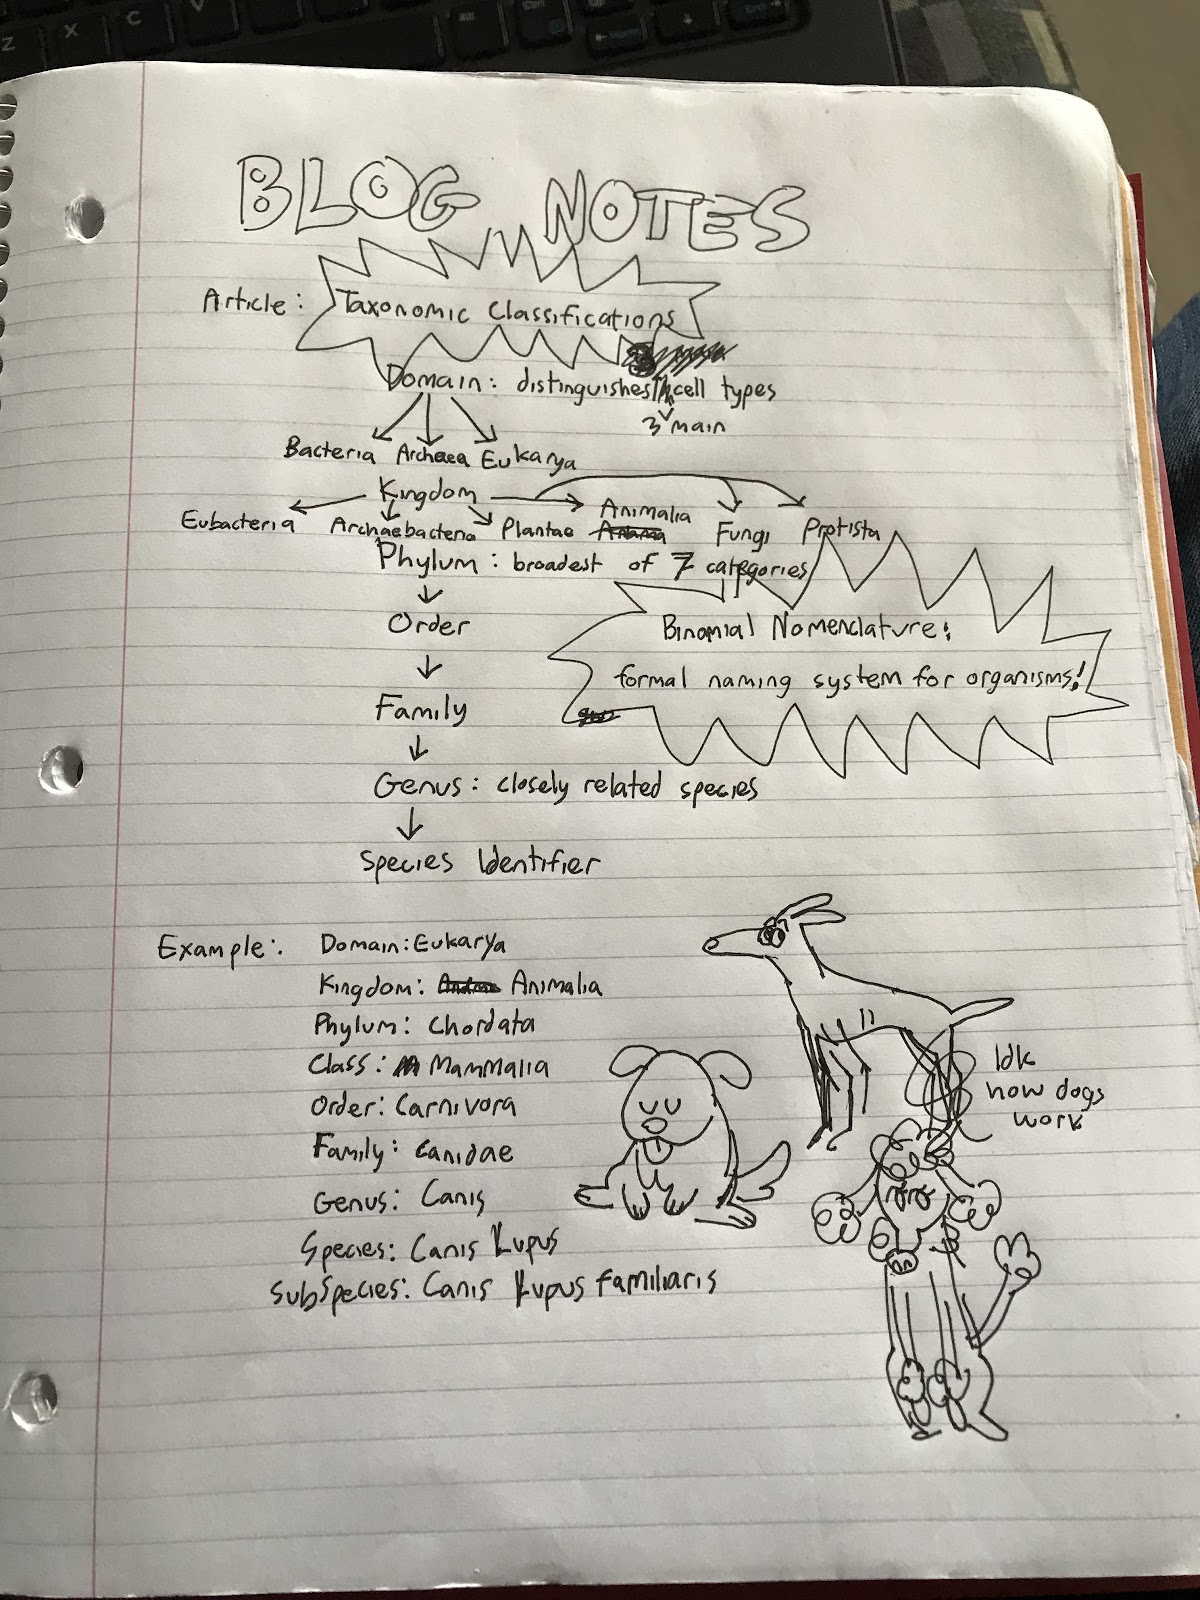 BLOG NOTES
Article: Taxonomic Classifications
Domain: distinguishes cell types
3 main
Bacteria Archaea Eukarya
Kingdom
Eubacteria Archaebacteria Plantae Animalia Fungi Protista
Phylum: broadest of 7 categories
Order
Binomial Nomenclature:
formal naming system for organisms!
Family
Genus: closely related species
Species Identifier
Example: Domain: Eukarya
Kingdom: Animalia
Phylum: Chordata
Class: Mammalia
Order: Carnivora
Family: Canidae
Genus: Canis
Species: Canis Lupus
Subspecies: Canis Lupus familiaris
Idk
how dogs
work